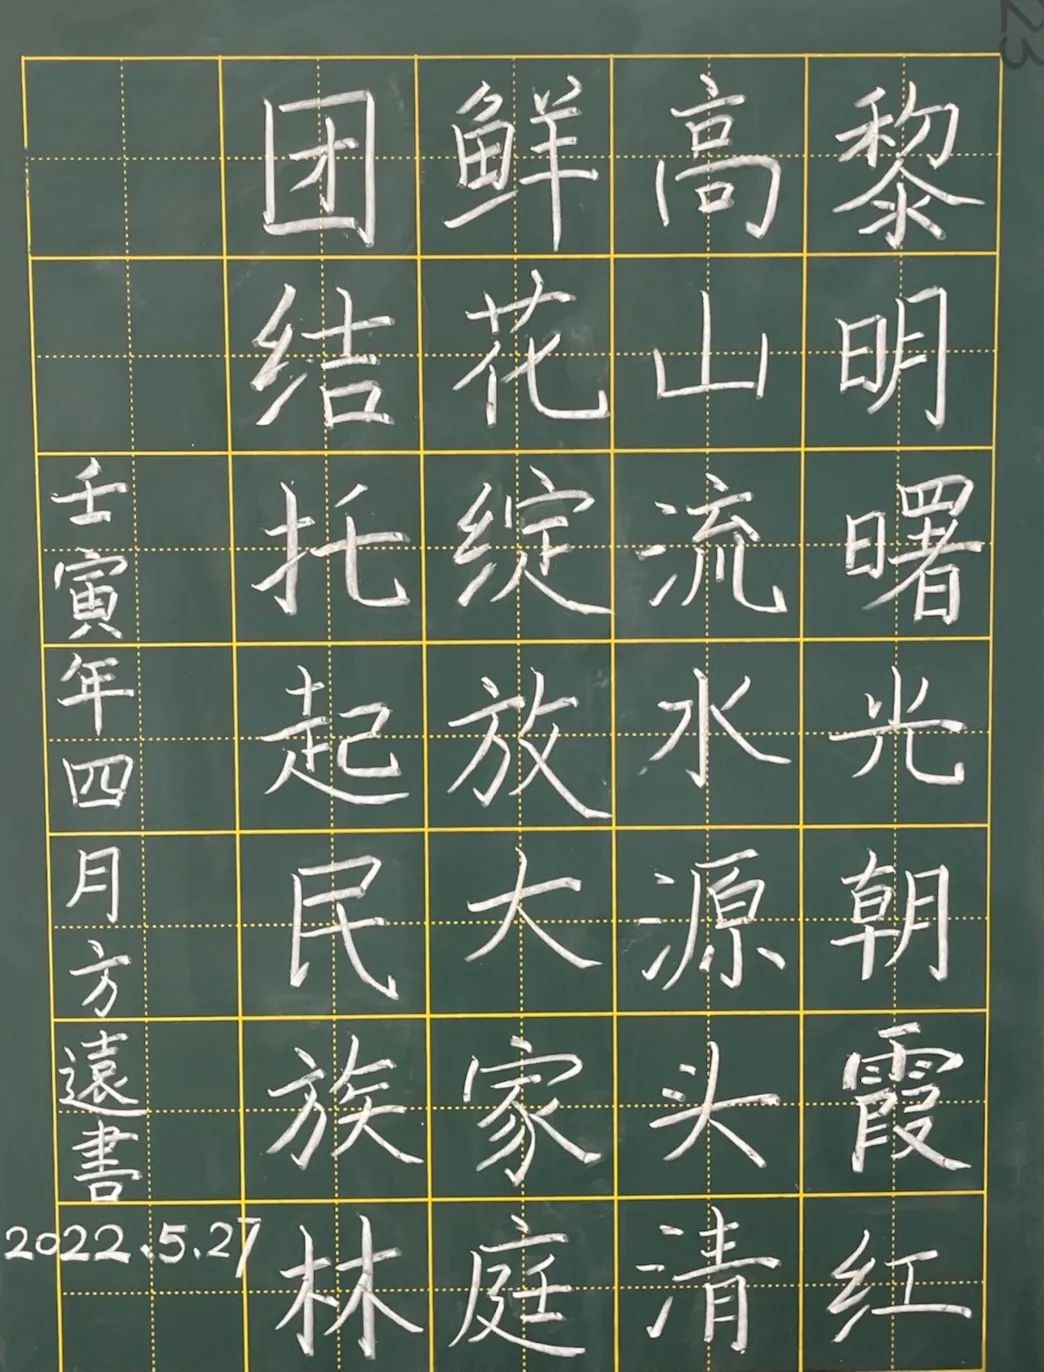 黎明曙光朝霞红
高山流水源头清
鲜花绽放大家庭
团结托起民族林
壬寅年四月方遠書
2022.5.27
23